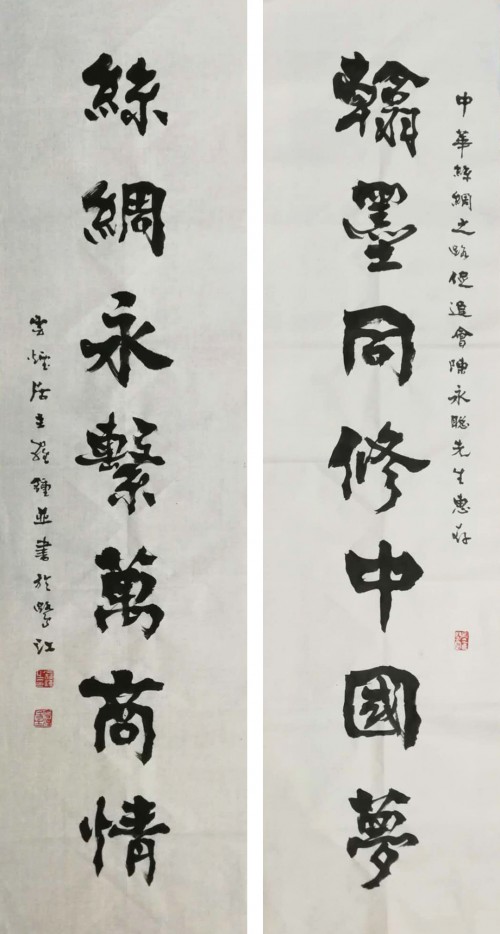 中華絲綢之路促進會陳永聰先生惠存
翰墨同修中國夢
絲綢永繫萬商情
雲煙居主羅鍾並書於鑒江